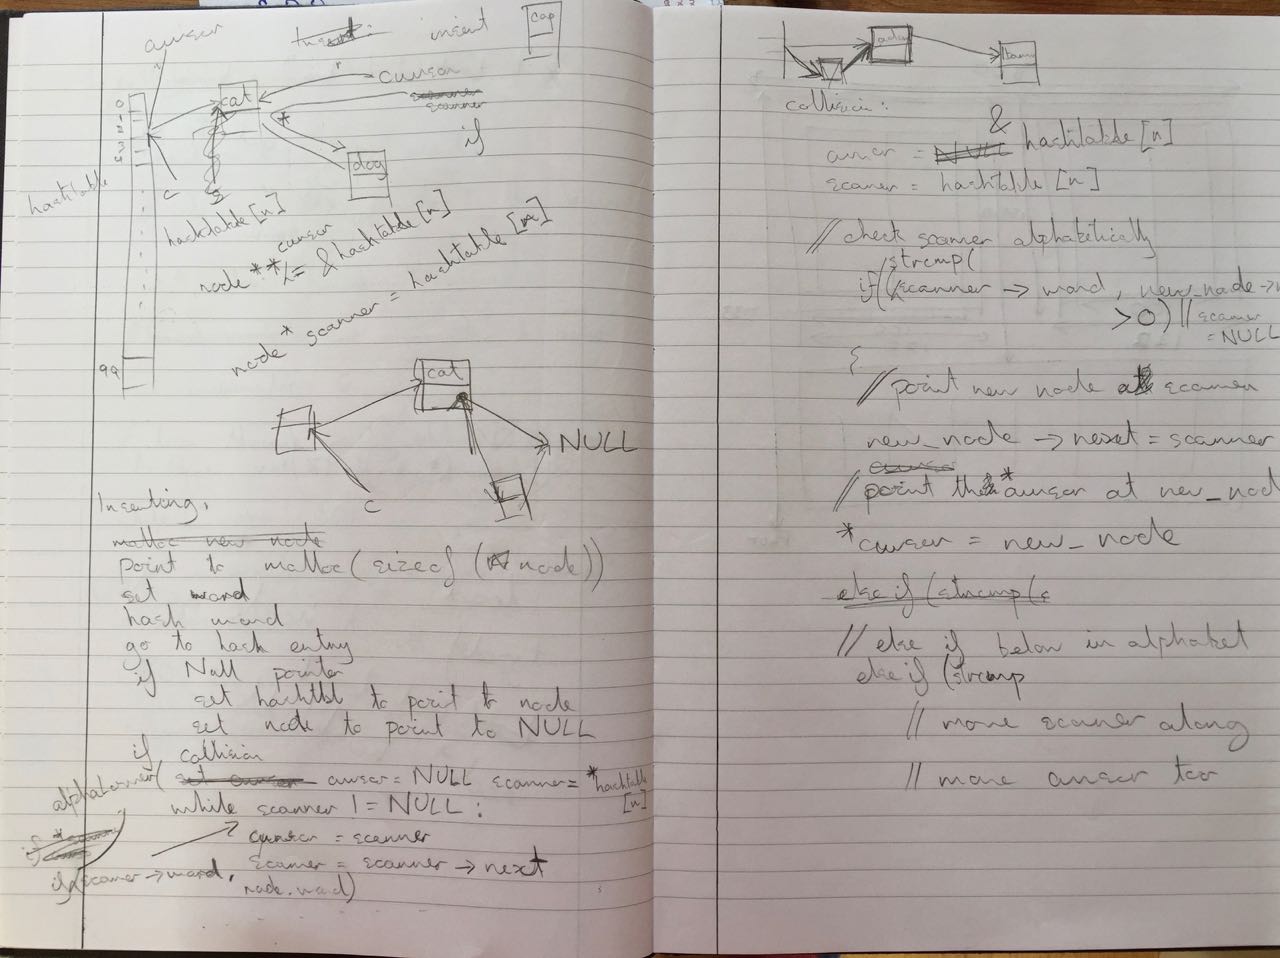 cursor
insert
cap
0
1
2
3
4
99
hashtable
cat
cursor
scanner
*
if
dog
c
s
hashtable [n]
cursor
node ** = & hashtable [n]
node * scanner = hashtable [n]
cat
NULL
c
Inserting,
malloc new node
point to malloc (sizeof (node))
set word
hash word
go to hash entry
if Null pointer
set hashtbl to point to node
set node to point to NULL
if collision
cursor = NULL scanner = *hashtable [n]
while scanner != NULL :
cursor = scanner
scanner = scanner → next
if (scanner → word,
node.word)
collision :
&
cursor = NULL hashtable [n]
scanner = hashtable [n]
// check scanner alphabetically
strcmp(
if ((scanner → word, new_node →
> 0) || scanner
= NULL
{
// point new node at scanner
new_node → next = scanner
// point the *cursor at new_nod
*cursor = new_node
else if (strcmp (s
// else if below in alphabet
else if (strcmp
// move scanner along
// move cursor too